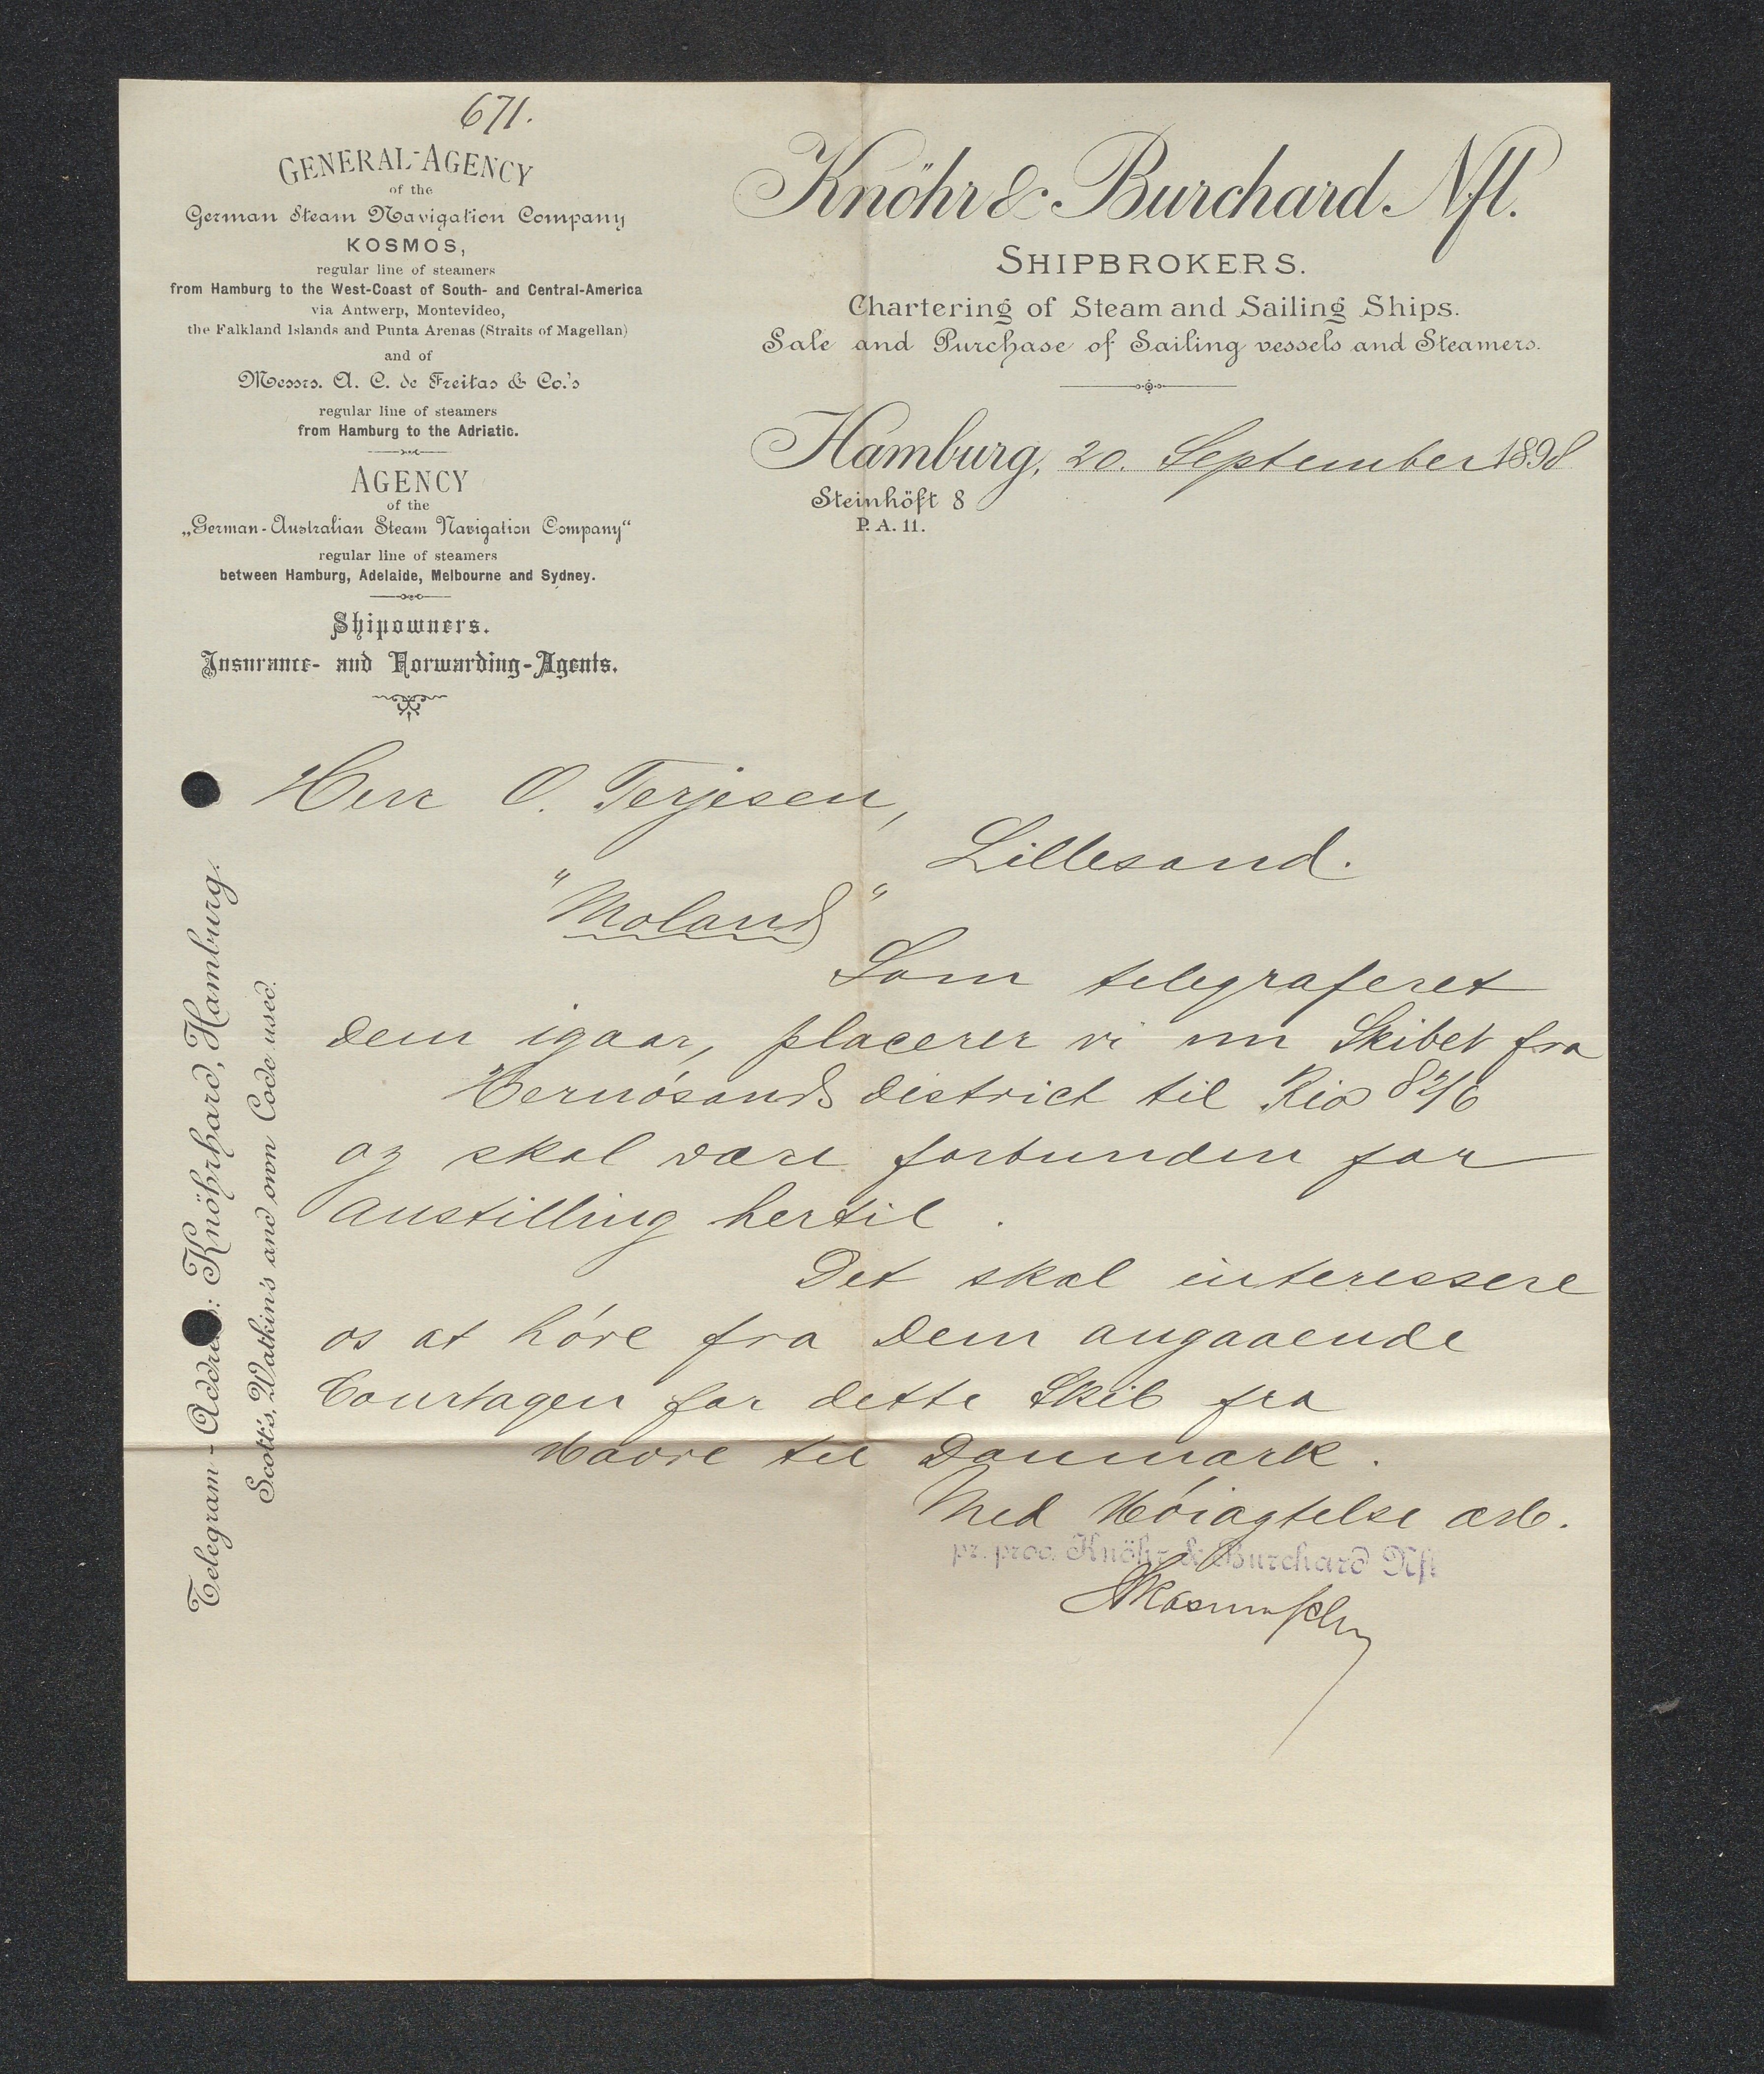 671.
GENERAL-AGENCY
of the
German Steam Navigation Company
KOSMOS,
regular line of steamers
from Hamburg to the West-Coast of South- and Central-America
via Antwerp, Montevideo,
the Falkland Islands and Punta Arenas (Straits of Magellan)
and of
Messrs. A. C. de Freitas & Co.'s
regular line of steamers
from Hamburg to the Adriatic.
AGENCY
of the
„German-Australian Steam Navigation Company“
regular line of steamers
between Hamburg, Adelaide, Melbourne and Sydney.
Shipowners.
Insurance- and Forwarding-Agents.
Knöhr & Burchard Nfl.
SHIPBROKERS.
Chartering of Steam and Sailing Ships.
Sale and Purchase of Sailing vessels and Steamers.
Hamburg, 20. September 1898
Steinhöft 8
P. A. 11.
Telegram-Address: Knöhrhard, Hamburg.
Scott's, Watkin's and own Code used.
Herr O. Terjesen,
Lillesand.
"Moland"
Som telegraferet
Dem igaar, placerer vi nu Skibet fra
Hernösands District til Rio 82/6
og skal være forbunden for
Anstilling hertil.
Det skal interessere
os at höre fra Dem angaaende
Courtagen for dette Skib fra
Havre til Danmark.
Med Höiagtelse ærb.
pr. proc. Knöhr & Burchard Nfl